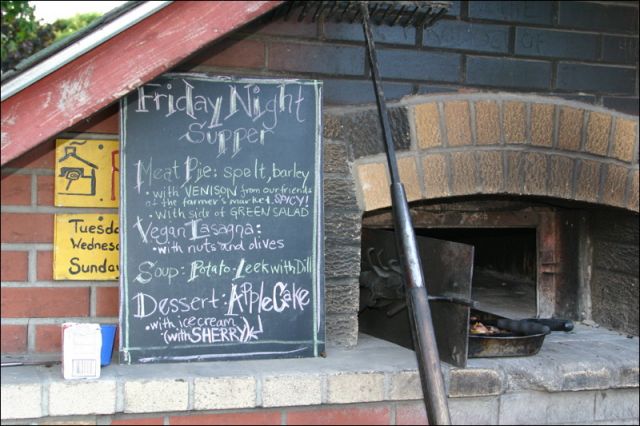 Friday Night
Supper
Meat Pie: spelt, barley
• with VENISON from our friends
at the farmer's market. SPICY!
• with side of GREEN SALAD
Vegan Lasagna:
• with nuts and olives
Soup: Potato-Leek with Dill
Dessert: Apple Cake
• with ice cream
(with SHERRY)
Tuesd
Wednes
Sunda